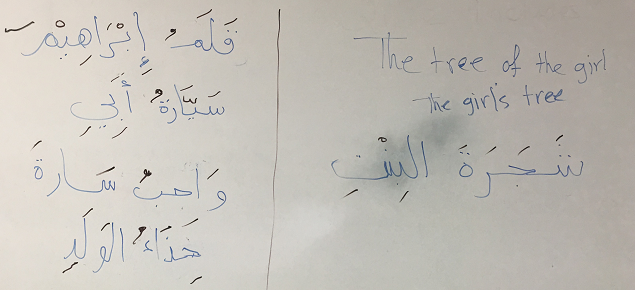 قَلَمُ إِبْرَاهِيْم
سَيَّارَةُ أَبِي
وَاجِبُ سَارةَ
حِذَاءُ الوَلَدِ
The tree of the girl
The girl's tree
شَجَرَةَ البِنْتِ